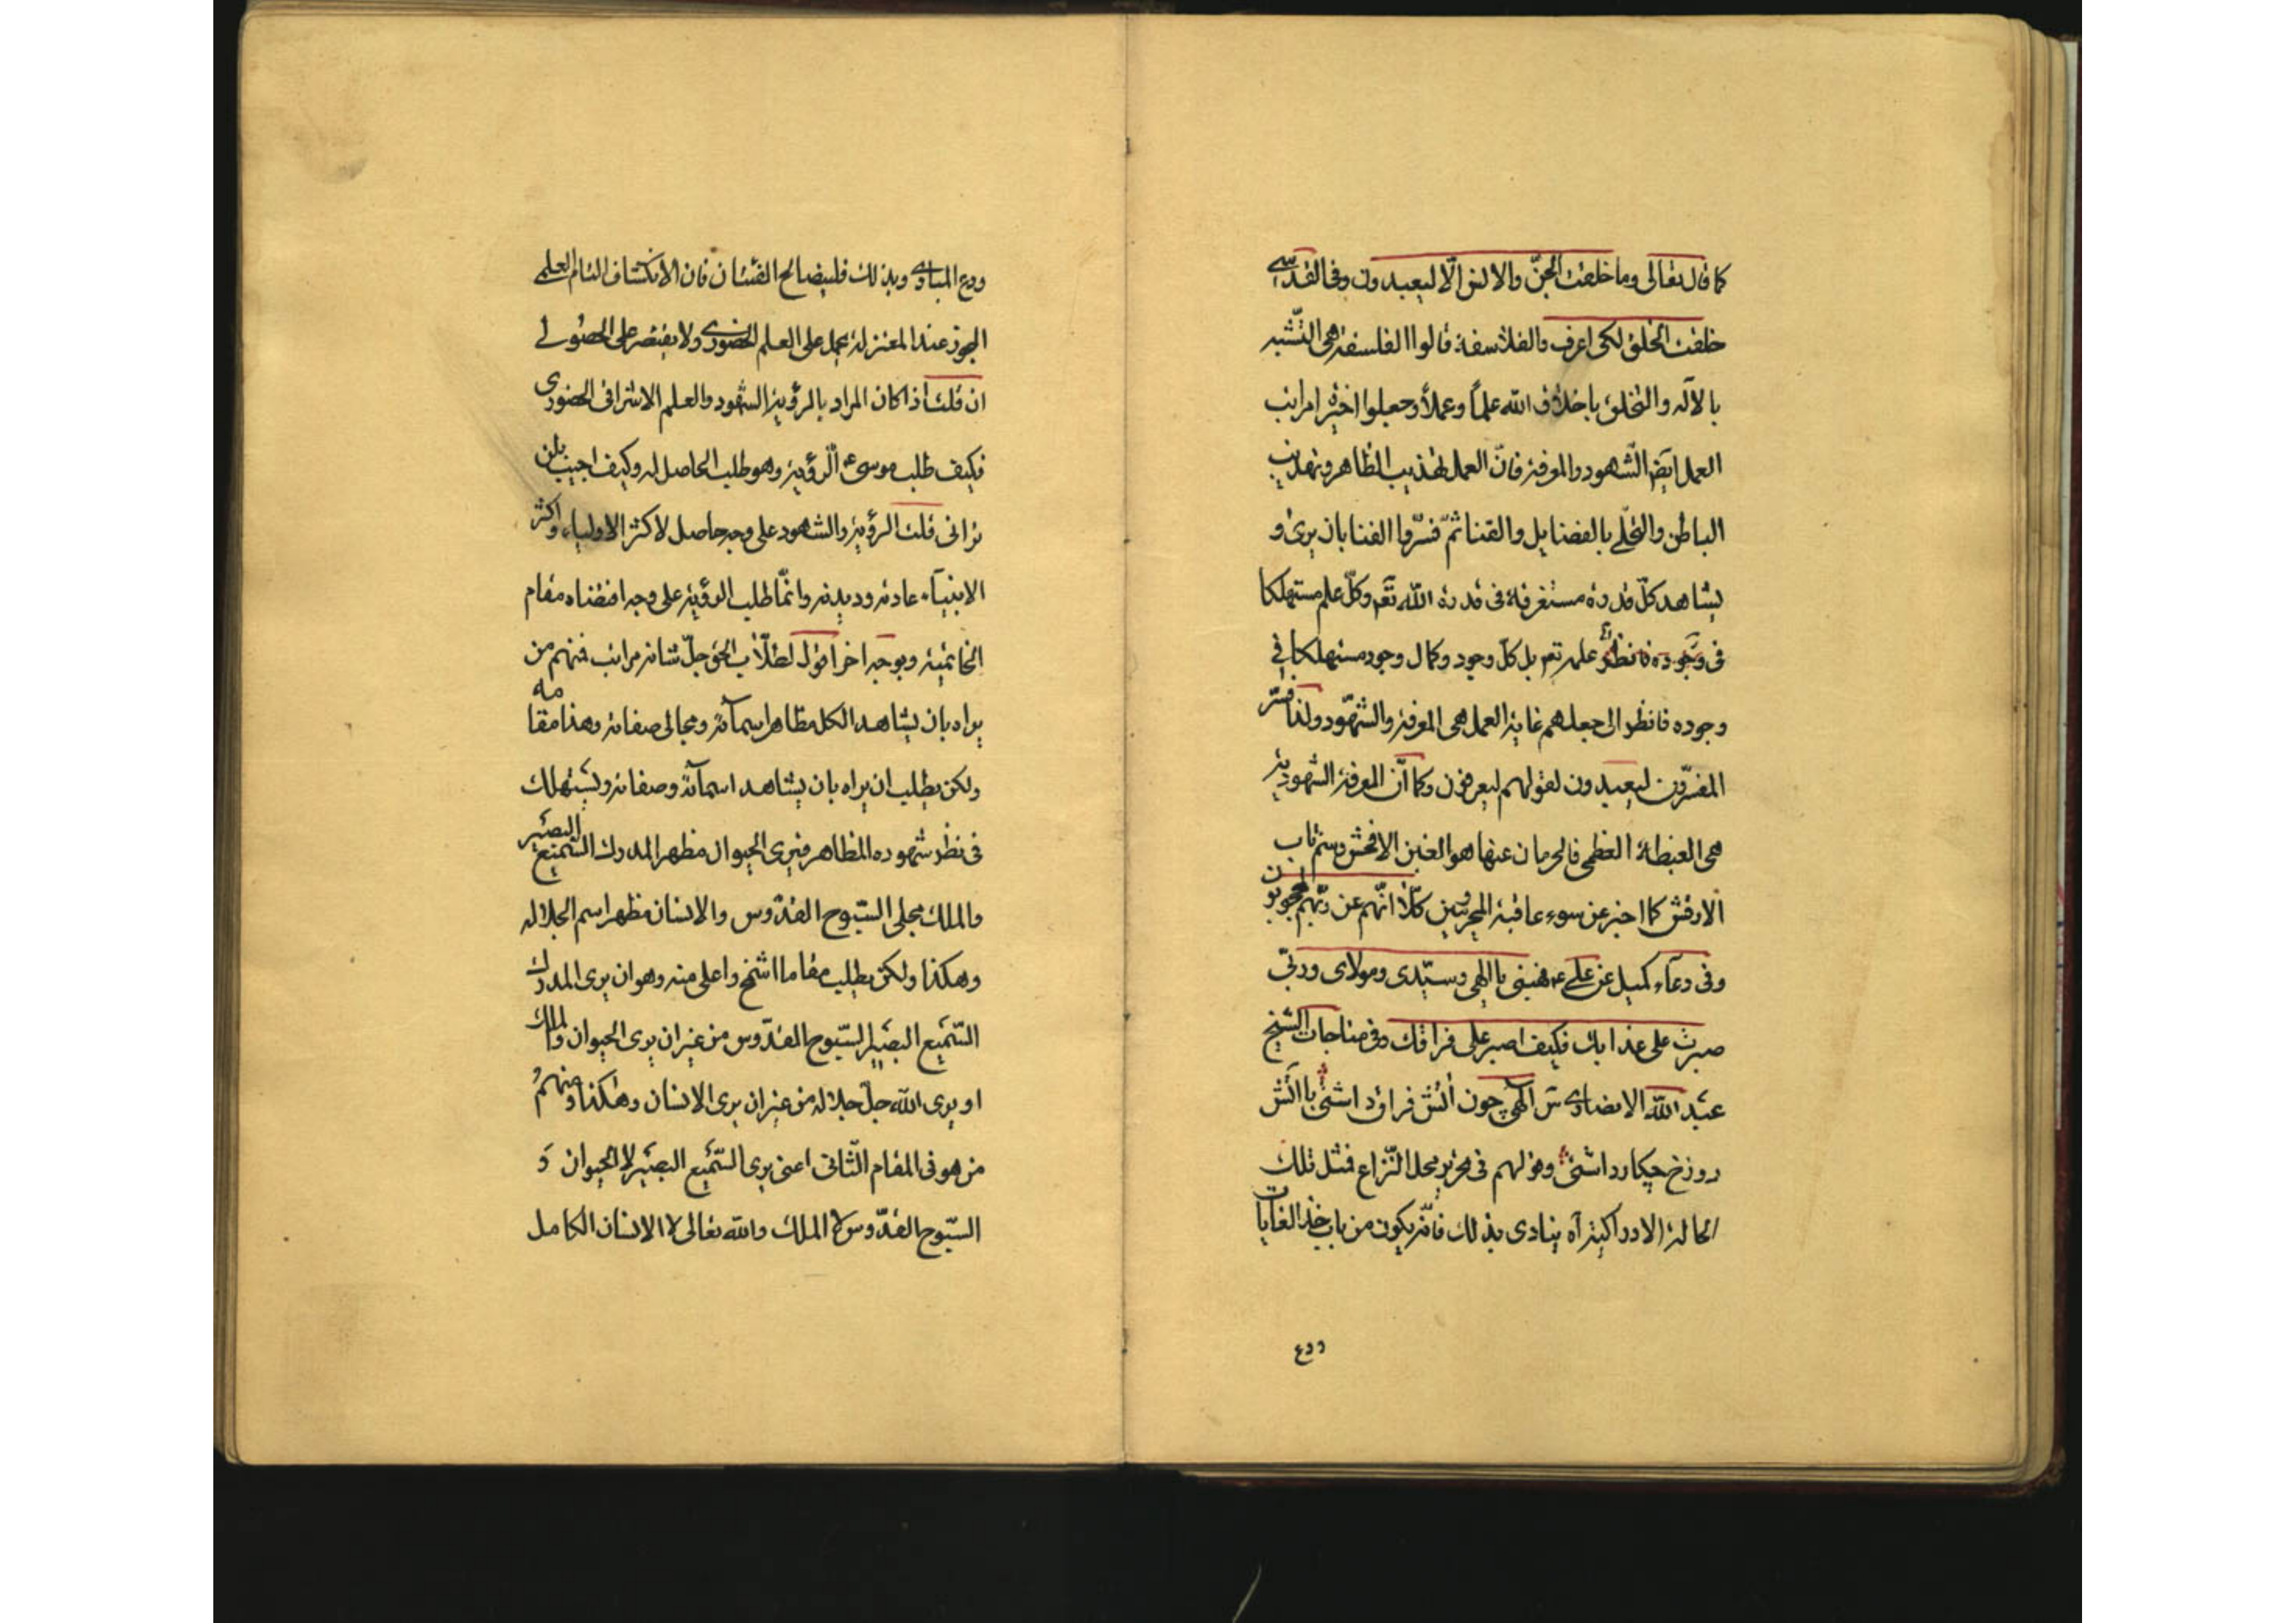 كما قال تعالى وما خلقت الجنّ والانس الّا ليعبدون وفى القدسّى
خلقت الخلق لكى اعرف والفلاسفة قالوا الفلسفة هى التّشبه
بالاله والتخلق باخلاق الله علماً وعملاً وجعلوا اخيرة مراتب
العمل ايضا الشّهود والمعرفة فانّ العمل تهذيب الظاهر وتهذيب
الباطن والتحلّى بالفضايل والفنا ثمّ فسّروا الفنا بان يرى و
يشاهد كلّ قدرة مستغرقة فى قدرة الله تعم وكلّ علم مستهلكا
فى علمه تعم بل كلّ وجود وكمال وجود مستهلكا فى
وجوده فانظر الى جعلهم غاية العمل هى المعرفة والشهّود ولذا فسّر
المفسّرون ليعبدون لقولهم ليعرفون وكما انّ المعرفة الشهودية
هى الغبطة العظمى فالحرمان عنها هو الغبن الافحش وسمّ ناب
الارقش كما اخبر عن سوء عاقبة المجرمين كلّا انّهم عن ربّهم لمحجوبون
وفى دعاء كميل عن على ع فهبنى يا الهى وسيّدى ومولاى وربّى
صبرت على عذابك فكيف اصبر على فراقك وفى مناجات الشيخ
عبد الله الانصارى س الهى چون آتش فراق داشتى با آتش
دوزخ چكار داشتى وقولهم فى تحرير محل النّزاع فمثل تلك
الحالة الادراكية آه ينادى بذلك فانّه يكون من باب خذ الغايات
ودع
ودع المبادى وبذلك فليصالح الفئتان فان الانكشاف التام العلمى
المجوز عند المعتزلة يحمل على العلم الحضورى ولا يقتصر على الحصولى
ان قلت اذا كان المراد بالرؤية الشهود والعلم الاشراقى الحضورى
فكيف طلب موسى ع الرؤية وهو طلب الحاصل له وكيف اجيب بلن
ترانى قلت الرؤية والشهود على وجه حاصل لاكثر الاولياء واكثر
الانبياء عادته وديدنه وانّما طلب الرؤية على وجه اقتضاه مقام
الخاتمية وبوجه اخر اقول لطلّاب الحق جلّ شانه مراتب فمنهم من
يراه بان يشاهد الكل مظاهر اسمآئه ومجالى صفاته وهذا مقامه
ولكن يطلب ان يراه بان يشاهد اسمآئه وصفاته ويستهلك
فى نظر شهوده المظاهر فيرى الحيوان مظهر المدرك السّميع البصير
والملك مجلى السّبوح القدّوس والانسان مظهر اسم الجلاله
وهكذا ولكن يطلب مقاما اشمخ واعلى منه وهو ان يرى المدرك
السّميع البصير السّبوح القدّوس من غير ان يرى الحيوان والملك
او يرى الله جلّ جلاله من غير ان يرى الانسان وهكذا ومنهم
من هو فى المقام الثّانى اعنى يرى السّميع البصير لا الحيوان و
السّبوح القدّوس لا الملك والله تعالى لا الانسان الكامل